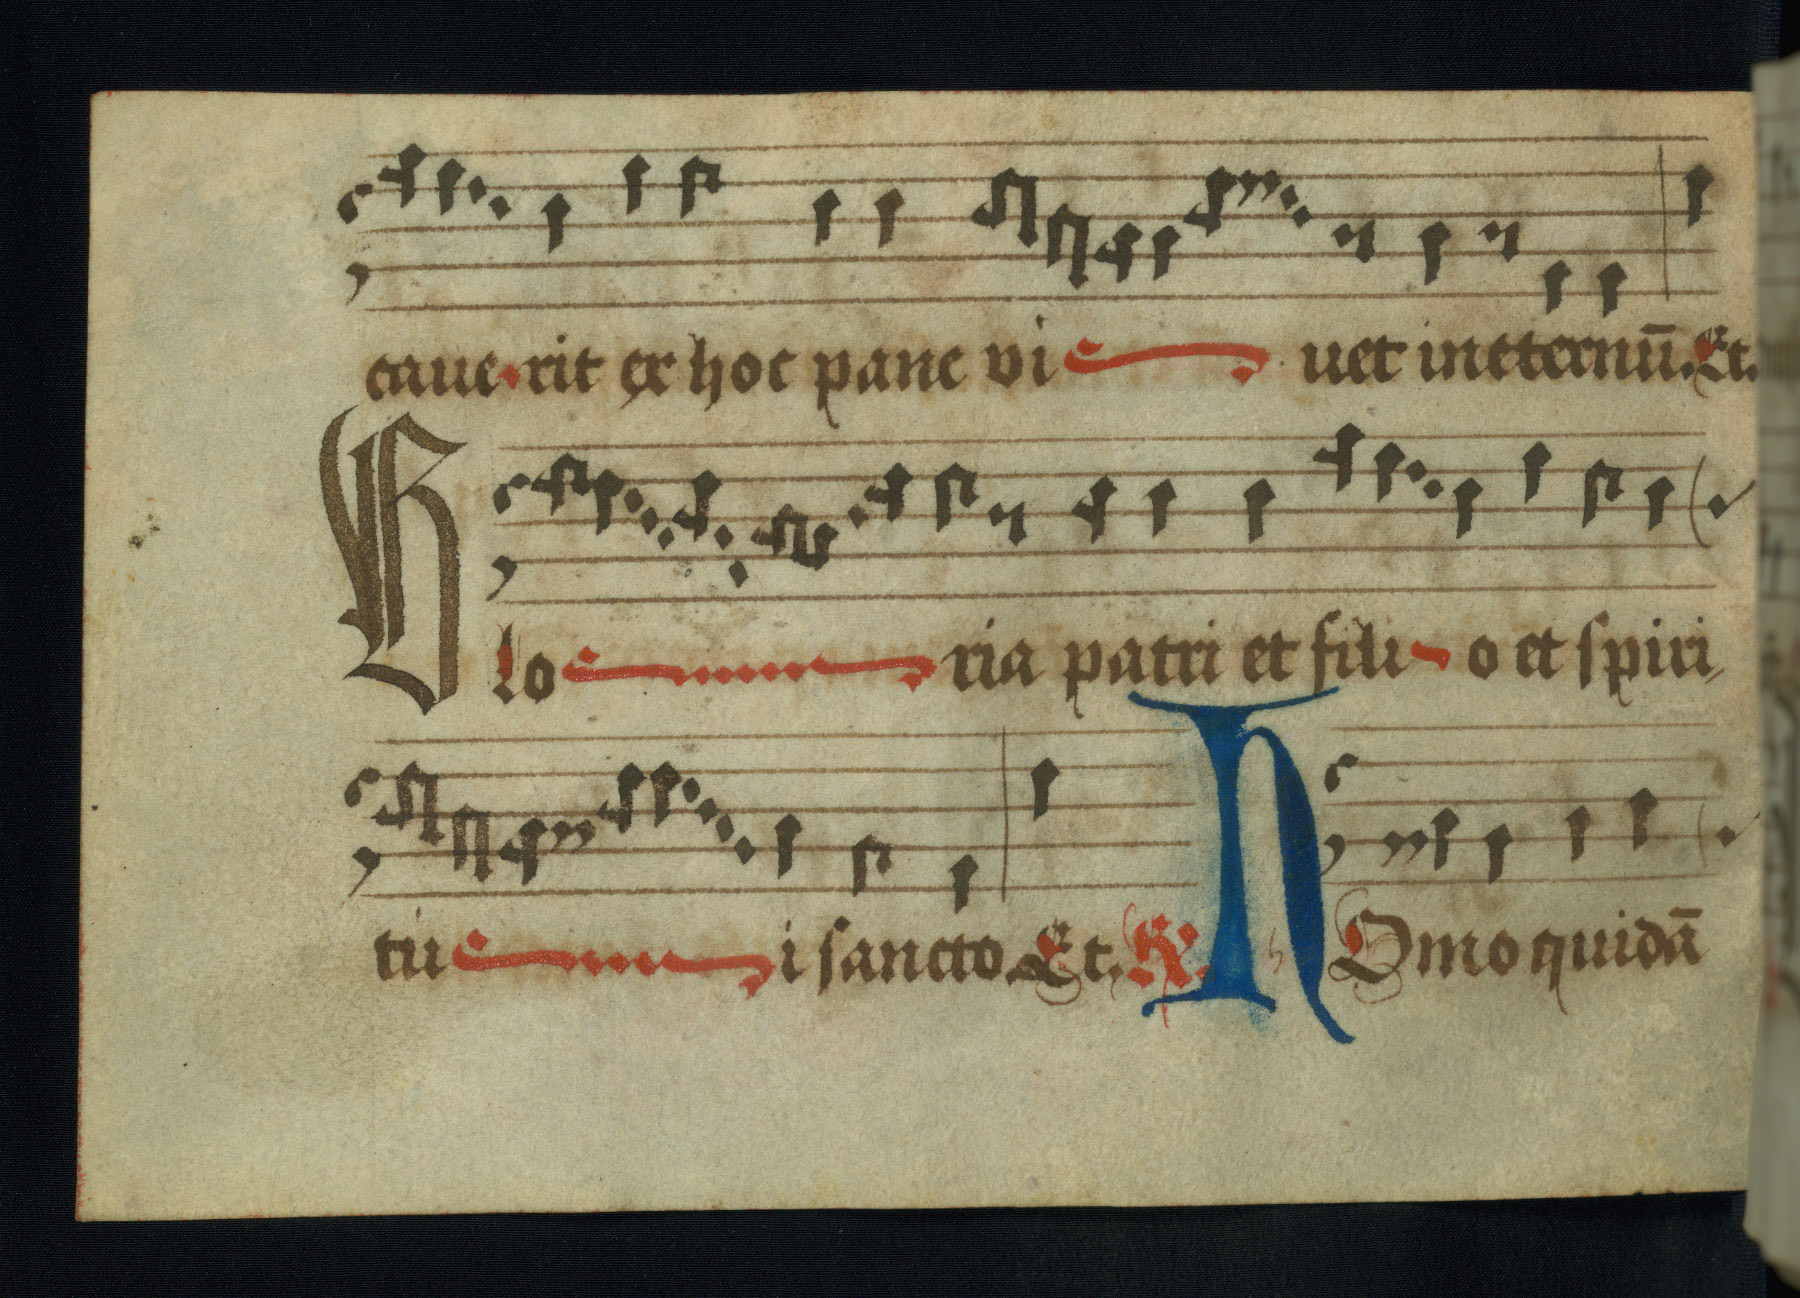 caue rit ex hoc pane vi uet ineternū. Et.
Glo ria patri et fili o et spiri
tu i sancto. Et. R. H Omo quidā